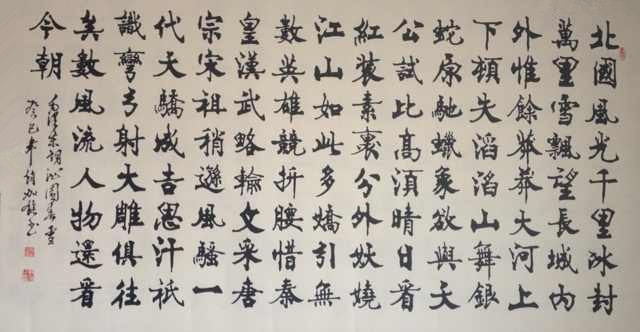 北國風光千里冰封
萬里雪飄望長城內
外惟餘莽莽大河上
下頓失滔滔山舞銀
蛇原馳蠟象欲與天
公試比高須晴日看
紅裝素裹分外妖嬈
江山如此多嬌引無
數英雄競折腰惜秦
皇漢武略輸文采唐
宗宋祖稍遜風騷一
代天驕成吉思汗祇
識彎弓射大雕俱往
矣數風流人物還看
今朝
毛澤東詞沁園春雪
癸巳年